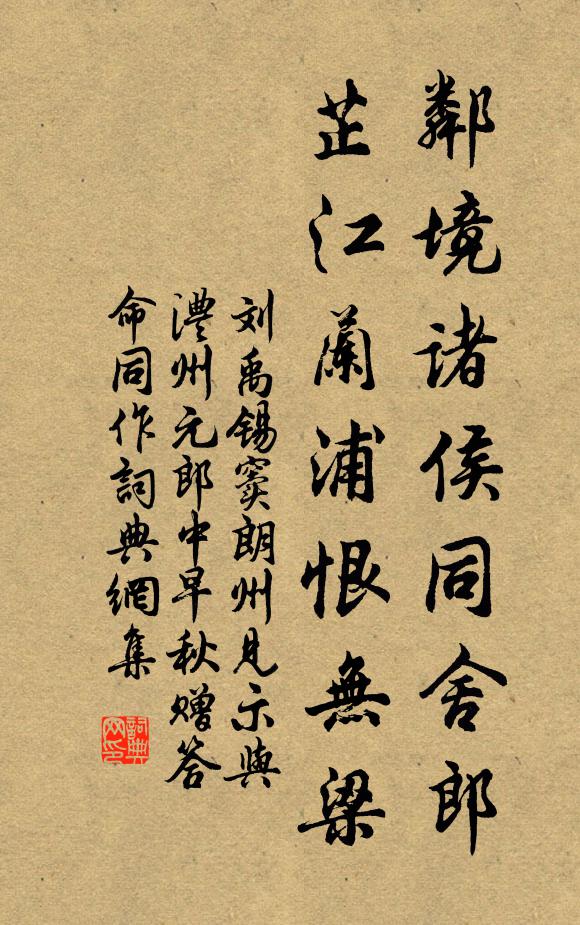 鄰境諸侯同舍郎
芷江蘭浦恨無梁
刘禹锡窦朗州見示與
澧州元郎中早秋赠答
命同作詞典網集
詞典
网印